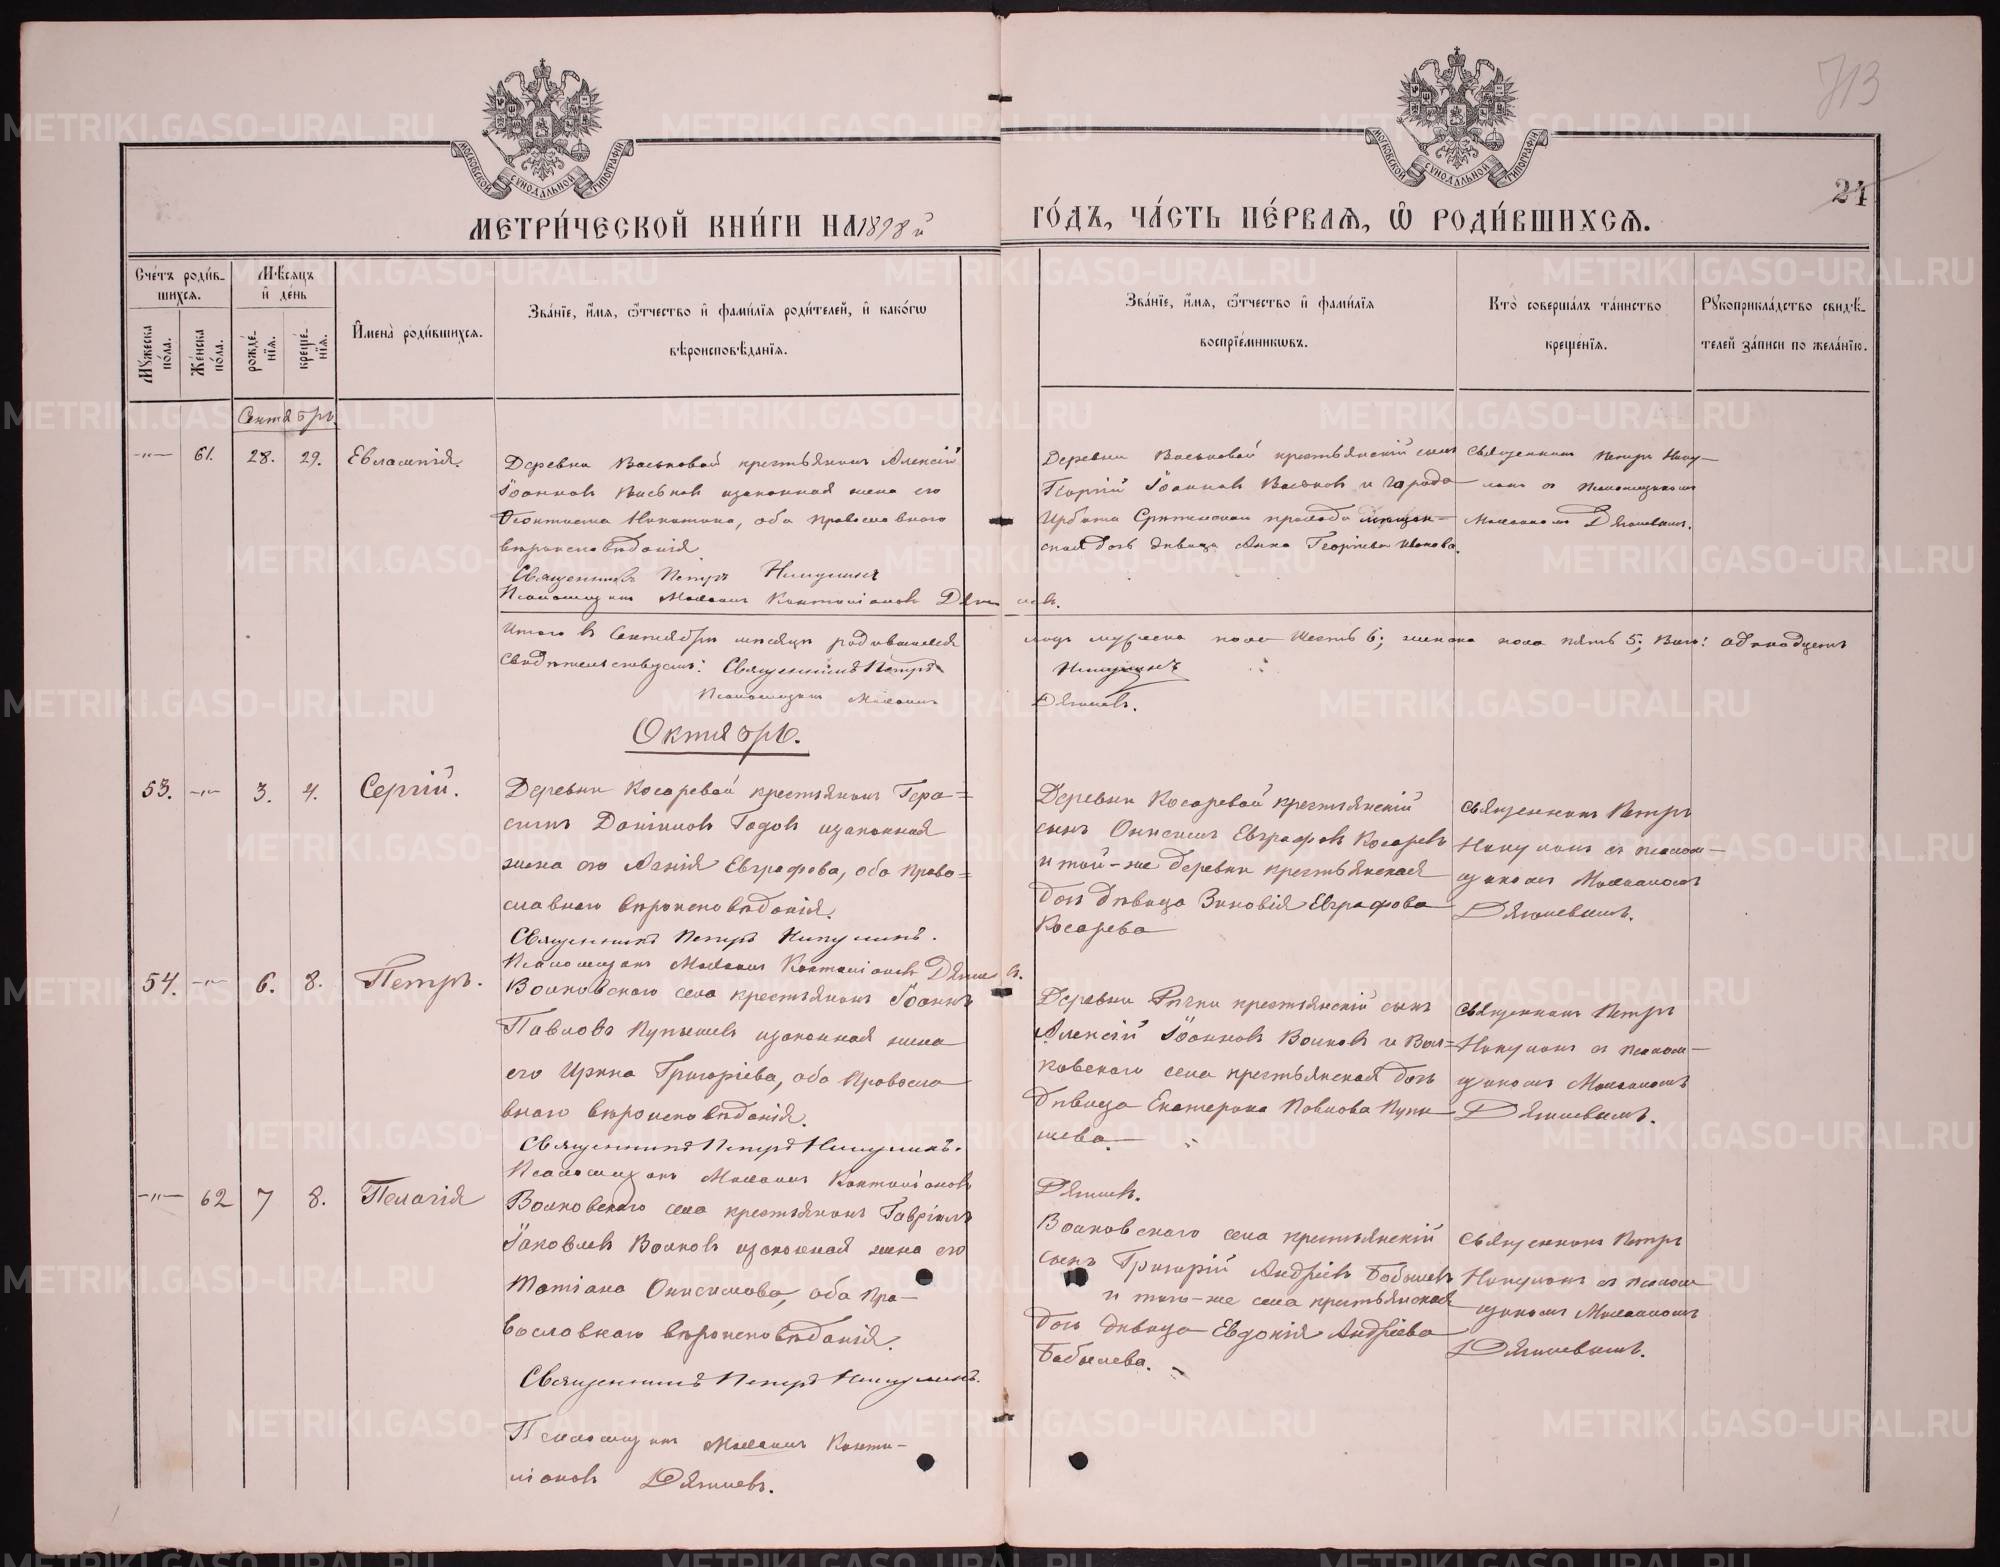 713
24
МОСКОВСКОЙ СѴНОДАЛЬНОЙ ТИПОГРАФІИ
МОСКОВСКОЙ СѴНОДАЛЬНОЙ ТИПОГРАФІИ
МЕТРИ́ЧЕСКОЙ КНИ́ГИ НА 1898 й ГО́ДЪ, ЧА́СТЬ ПЕ́РВАѦ, Ѡ҆ РОДИ́ВШИХСѦ.
Сче́тъ роди́в-
шихсѧ.
Мѣ́сѧцъ
и҆ де́нь
Мꙋ́жеска по́ла.
Же́нска по́ла.
рожде́-
нїѧ.
креще́-
нїѧ.
И҆мена̀ роди́вшихсѧ.
Зва́нїе, и҆́мѧ, ѻ҆́тчество и҆ фами́лїѧ роди́телей, и҆ како́гѡ
вѣроисповѣ́данїѧ.
Зва́нїе, и҆́мѧ, ѻ҆́тчество и҆ фами́лїѧ
воспрїе́мникѡвъ.
Кто̀ соверша́лъ та́инство
креще́нїѧ.
Рꙋкоприкла́дство свидѣ́-
телей за́писи по жела́нїю.
Сентябрь.
-"- 61. 28. 29. Евлампія.
Деревни Васьковой крестьянинъ Алексій
Іоанновъ Васьковъ и законная жена его
Феоктиста Никитина, оба православнаго
вѣроисповѣданія.
Священникъ Петръ Никулинъ
Псаломщикъ
Деревни Васьковой крестьянскій сынъ
Георгій Іоанновъ Васьковъ и города
Ирбита Срѣтенскаго прихода мѣщан-
ская дочь дѣвица Анна Георгіева
Священникъ Петръ Нику-
линъ съ псаломщикомъ
Дягилевымъ.
Итого въ Сентябрѣ мѣсяцѣ родившихся
мужеска пола шесть 6; женска пола пять 5; Всего: одинадцать
Свидѣтельствуемъ: Священникъ Петръ
Никулинъ
Псаломщикъ
Дягилевъ.
Октябрь.
53. -"- 3. 4. Сергій.
Деревни Косаревой крестьянинъ Гера=
симъ Даніиловъ Годовъ и законная
жена его Агнія Евграфова, оба Право=
славнаго вѣроисповѣданія.
Священникъ Петръ Никулинъ.
Псаломщикъ
Деревни Косаревой крестьянскій
сынъ Онисимъ Евграфовъ Косаревъ
и той-же деревни крестьянская
дочь дѣвица Зиновія Евграфова
Косарева
Священникъ Петръ
Никулинъ съ псалом-
щикомъ
Дягилевымъ.
54. -"- 6. 8. Петръ.
Волковскаго села крестьянинъ Іоаннъ
Павловъ Пупышевъ и законная жена
его Ирина Григоріева, оба Правосла
внаго вѣроисповѣданія.
Священникъ Петръ Никулинъ.
Псаломщикъ
Деревни Рѣчки крестьянскій сынъ
Алексій Іоанновъ Волковъ и Вол=
ковскаго села крестьянская дочь
дѣвица Екатерина Павлова Пупы
шева.
Священникъ Петръ
Никулинъ съ псалом-
щикомъ
Дягилевымъ.
Дягилевъ.
-"- 62 7 8. Пелагія
Волковскаго села крестьянинъ Гавріилъ
Іаковлевъ Волковъ и законная жена его
Татіана Онисимова, оба Пра-
вославнаго вѣроисповѣданія.
Священникъ Петръ Никулинъ.
Псаломщикъ
Дягилевъ.
Волковскаго села крестьянскій
сынъ Григорій Андріевъ Бабылевъ
и того-же села крестьянская
дочь дѣвица Евдокія Андріева
Бабылева.
Священникъ Петръ
Никулинъ съ псалом
щикомъ
Дягилевымъ.
METRIKI.GASO-URAL.RU